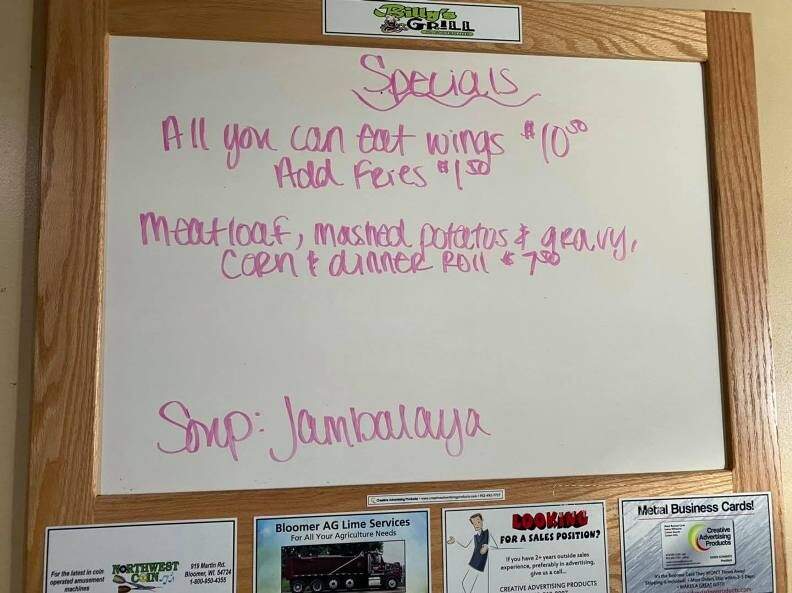 Billy's
GRILL
Specials
All you can eat wings $10.50
Add Fries $1.50
Meatloaf, mashed potatos & gravy,
Corn & dinner Roll $7.50
Soup: Jambalaya
NORTHWEST
COIN
For the latest in coin
operated amusement
machines
919 Martin Rd.
Bloomer, WI. 54724
1-800-850-4355
Bloomer AG Lime Services
For All Your Agriculture Needs
LOOKING
FOR A SALES POSITION?
If you have 2+ years outside sales
experience, preferably in advertising,
give us a call...
CREATIVE ADVERTISING PRODUCTS
Metal Business Cards!
Creative
Advertising
Products